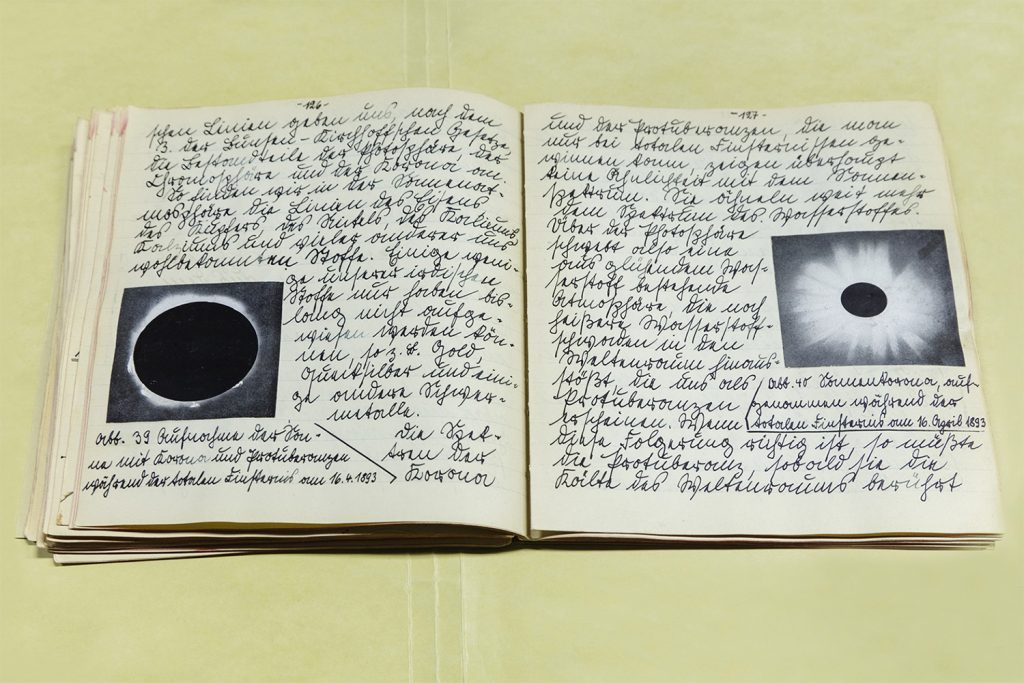 -126-
schen Linien geben uns, nach dem
3. der Bunsen-Kirchhoffschen Gesetze
die Bestandteile der Photosphäre der
Chromosphäre und der Korona an.
So finden wir in der Sonnenat-
mosphäre die Linien des Eisens
des Kupfers des Nikels des Kaliums
Kalziums und vieler anderer uns
wohlbekannten Stoffe. Einige weni-
ge unserer irdischen
Stoffe nur haben bis-
lang nicht aufge-
wiesen werden kön-
nen, so z.B. Gold,
Quecksilber und eini-
ge andere Schwer-
metalle.
Abb. 39 Aufnahme der Son-
ne mit Korona und Protuberanzen
während der totalen Finsternis am 16.4.1893
Die Spek-
tren der
Korona
-127-
und der Protuberanzen, die man
nur bei totalen Finsternissen ge-
winnen kann, zeigen überhaupt
keine Ähnlichkeit mit dem Sonnen-
spektrum. Sie ähneln weit mehr
dem Spektrum des Wasserstoffes.
Über der Photosphäre
schwebt also eine
aus glühendem Was-
serstoff bestehende
Atmosphäre, die noch
heißere Wasserstoff-
schwaden in den
Weltenraum hinaus-
stößt, die uns als
Protuberanzen
erscheinen. Wenn
diese Folgerung richtig ist, so müßte
die Protuberanz, sobald sie die
Kälte des Weltenraums berührt
Abb. 40 Sonnenkorona, auf-
genommen während der
totalen Finsternis am 16. April 1893